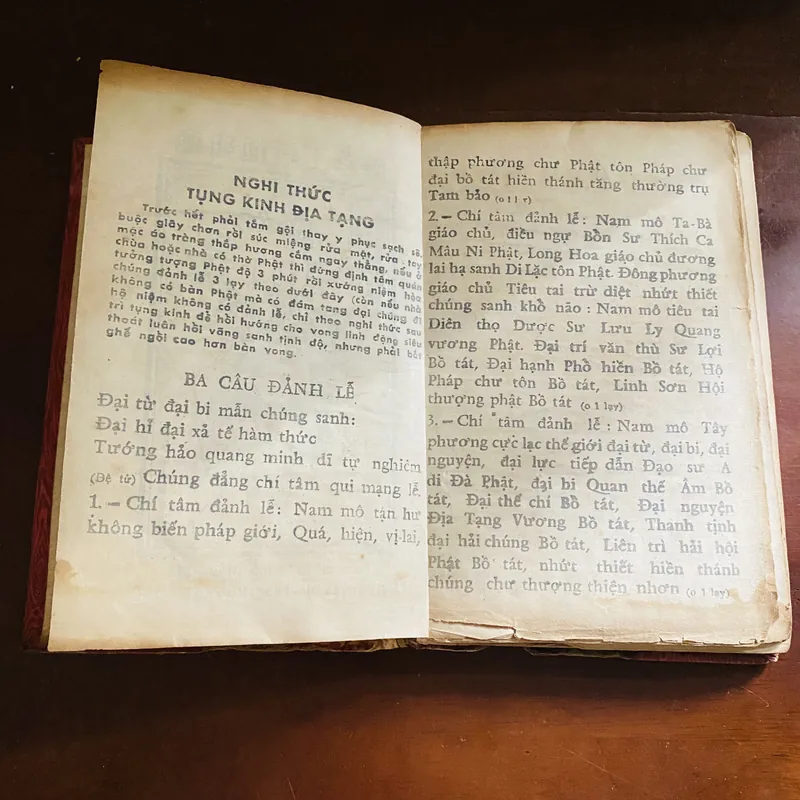 NGHI THỨC
TỤNG KINH ĐỊA TẠNG
Trước hết phải tắm gội thay y phục sạch sẽ,
buộc giây chơn rồi súc miệng rửa mặt, rửa tay
mặc áo tràng thắp hương cắm ngay thẳng, nếu ở
chùa hoặc nhà có thờ Phật thì đứng định tâm quán
tưởng tượng Phật độ 3 phút rồi xướng niệm hòa
chúng đảnh lễ 3 lạy theo dưới đây (còn nếu nhà
không có bàn Phật mà có đám tang đại chúng đi
hộ niệm không có đảnh lễ, chỉ theo nghi thức sau
trì tụng kinh để hồi hướng cho vong linh đặng siêu
thoát luân hồi vãng sanh tịnh độ, nhưng phải bắt
ghế ngồi cao hơn bàn vong.
BA CÂU ĐẢNH LỄ
Đại từ đại bi mẫn chúng sanh:
Đại hỉ đại xả tế hàm thức
Tướng hảo quang minh dĩ tự nghiêm
(Đệ tử) Chúng đẳng chí tâm qui mạng lễ.
1. — Chí tâm đảnh lễ: Nam mô tận hư
không biến pháp giới, Quá, hiện, vị-lai,
thập phương chư Phật tôn Pháp chư
đại bồ tát hiền thánh tăng thường trụ
Tam bảo (o 1 l y)
2. — Chí tâm đảnh lễ: Nam mô Ta-Bà
giáo chủ, điều ngự Bổn Sư Thích Ca
Mâu Ni Phật, Long Hoa giáo chủ đương
lai hạ sanh Di Lặc tôn Phật. Đông phương
giáo chủ Tiêu tai trừ diệt nhứt thiết
chúng sanh khổ não: Nam mô tiêu tai
Diên thọ Dược Sư Lưu Ly Quang
vương Phật. Đại trí văn thù Sư Lợi
Bồ tát, Đại hạnh Phổ hiền Bồ tát, Hộ
Pháp chư tôn Bồ tát, Linh Sơn Hội
thượng phật Bồ tát (o 1 lạy)
3. — Chí tâm đảnh lễ: Nam mô Tây
phương cực lạc thế giới đại từ, đại bi, đại
nguyện, đại lực tiếp dẫn Đạo sư A
di Đà Phật, đại bi Quan thế Âm Bồ
tát, Đại thế chí Bồ tát, Đại nguyện
Địa Tạng Vương Bồ tát, Thanh tịnh
đại hải chúng Bồ tát, Liên trì hải hội
Phật Bồ tát, nhứt thiết hiền thánh
chúng chư thượng thiện nhơn (o 1 lạy)